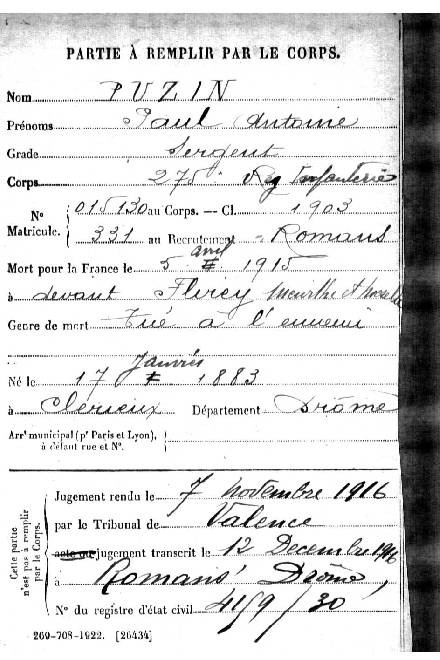 PARTIE À REMPLIR PAR LE CORPS.
Nom PUZIN
Prénoms Paul Antoine
Grade Sergent
Corps 275 Reg Infanterie
N° Matricule. 015130 au Corps. — Cl. 1903
331 au Recrutement Romans
Mort pour la France le 5 avril 1915
à devant Flirey Meurthe et Moselle
Genre de mort Tué à l'ennemi
Né le 17 Janvier 1883
à Clérieux Département Drôme
Arrt municipal (pr Paris et Lyon), à défaut rue et N°.
Cette partie n'est pas à remplir par le Corps.
Jugement rendu le 7 novembre 1916
par le Tribunal de Valence
acte ou jugement transcrit le 12 Decembre 1916
à Romans Drôme,
N° du registre d'état civil 41/9/30
269-708-1922. [26434]